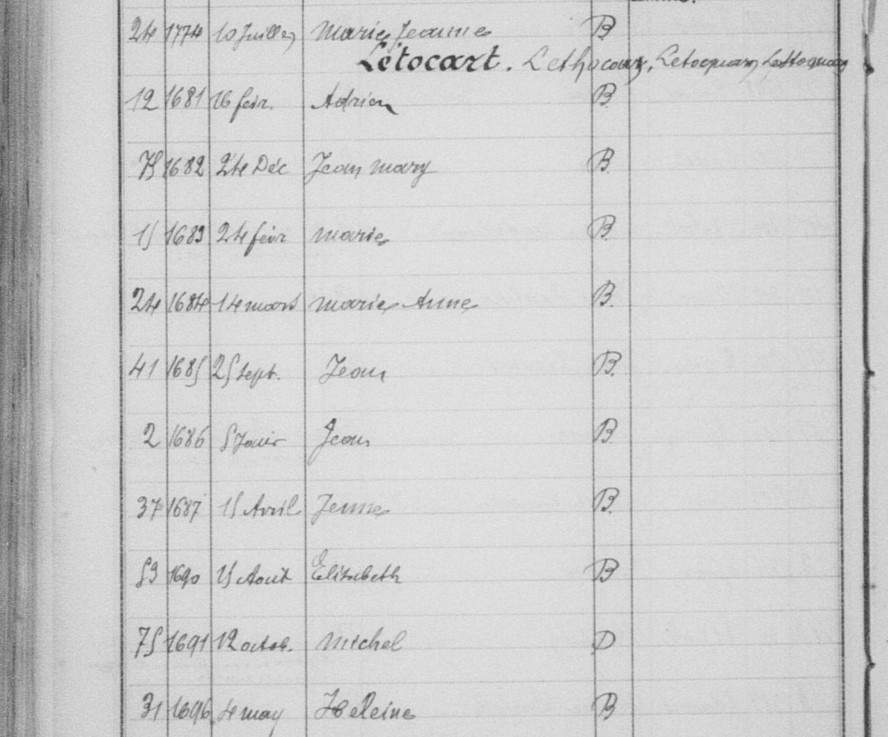 24 1774 10 Juillet Marie Jeanne B
Létocart. Lethocart, Letocquart
12 1681 16 fevr. Adrien B
75 1682 24 Déc Jean Mary B
15 1683 24 fevr Marie B
24 1684 14 mars Marie Anne B.
41 1685 25 Sept. Jean B.
2 1686 5 Janvr Jean B
37 1687 15 Avril Jenne B.
53 1690 25 Aout Elisabeth B
75 1691 12 octob. Michel D
31 1696 4 may Heleine B